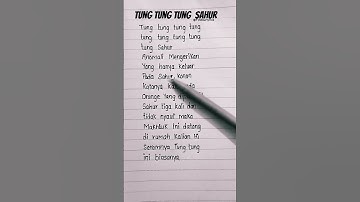 TUNG TUNG TUNG SAHUR
Tung tung tung tung
tung tung tung tung
tung Sahur
Anomali Mengerikan
Yang hanya keluar
Pada Sahur Konon
Katanya
Orange Yang
Sahur tiga kali dan
tidak nyaut maka
Makhluk Ini datang
di rumah kalian Ini
Seramnya Tung tung
ini biasanya